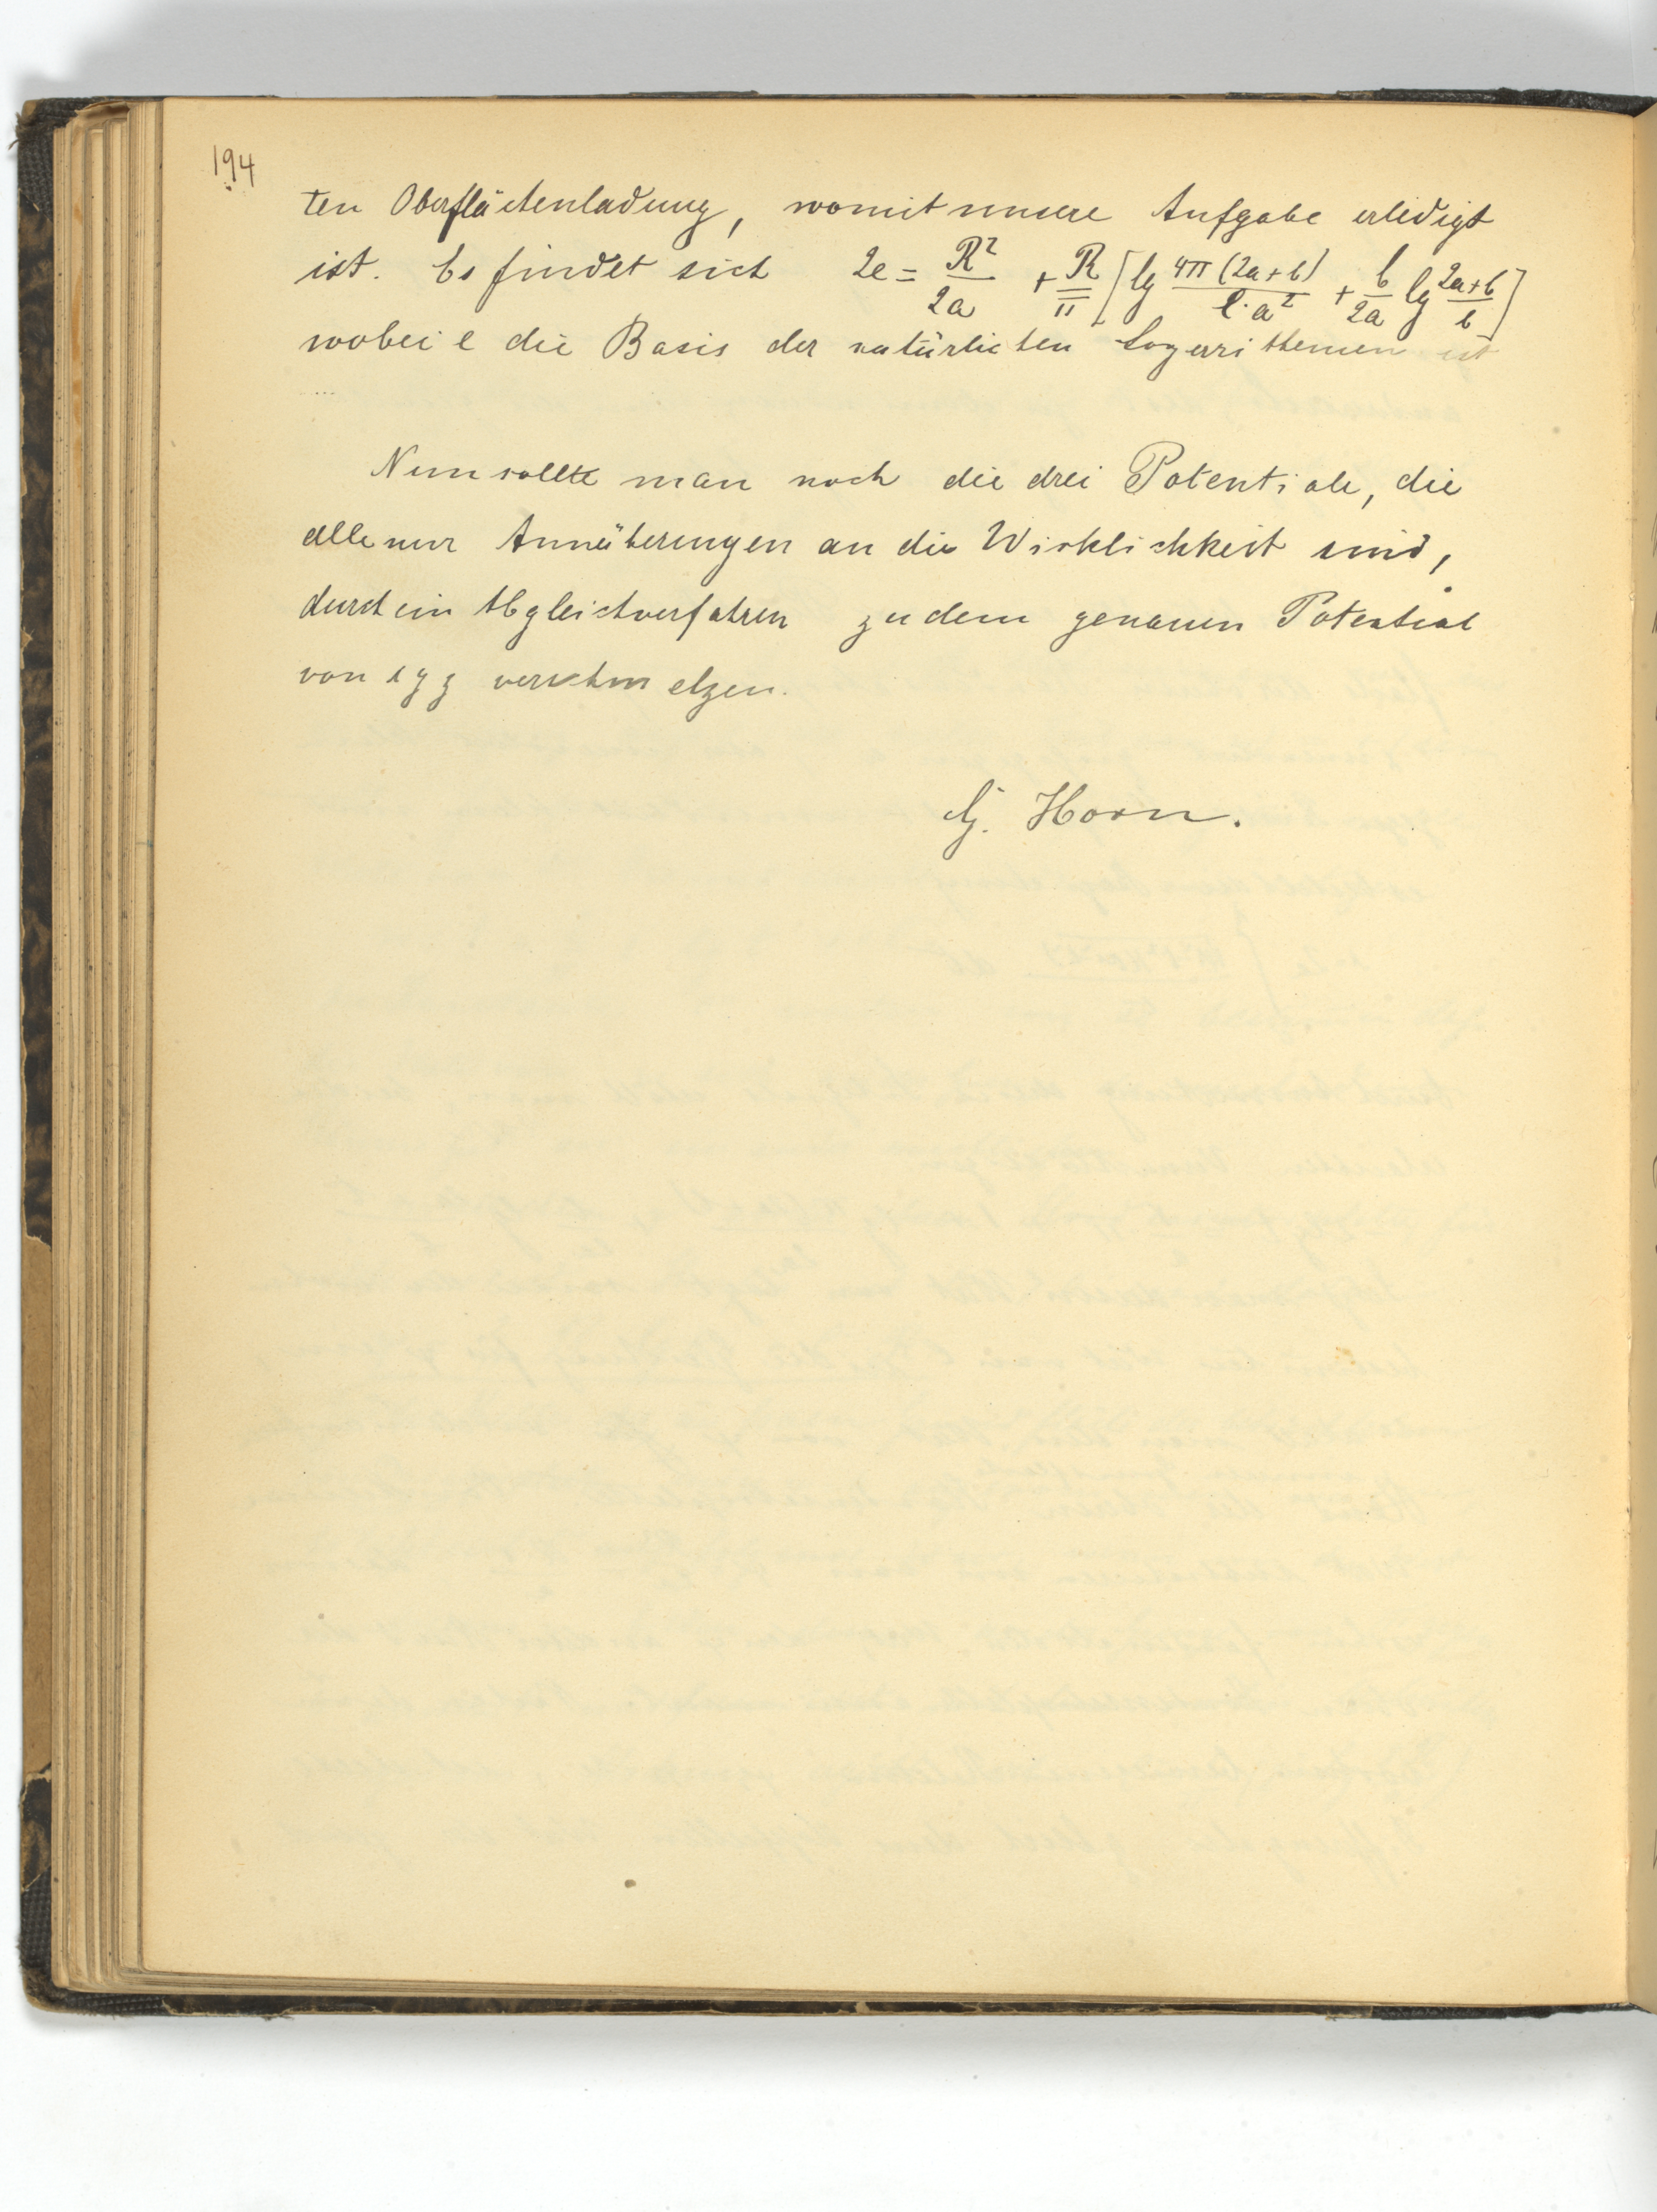 194
ten Oberflächenladung, womit unsere Aufgabe erledigt
ist. Es findet sich 2e = R²/2a + R/π [lg 4π(2a+b)/e·a² + b/2a lg 2a+b/b]
wobei e die Basis der natürlichen Logarithmen ist
Nun sollte man noch die drei Potentiale, die
alle nur Annäherungen an die Wirklichkeit sind,
durch ein Abgleichverfahren zu dem genauen Potential
von xyz verschmelzen.
G. Horn.